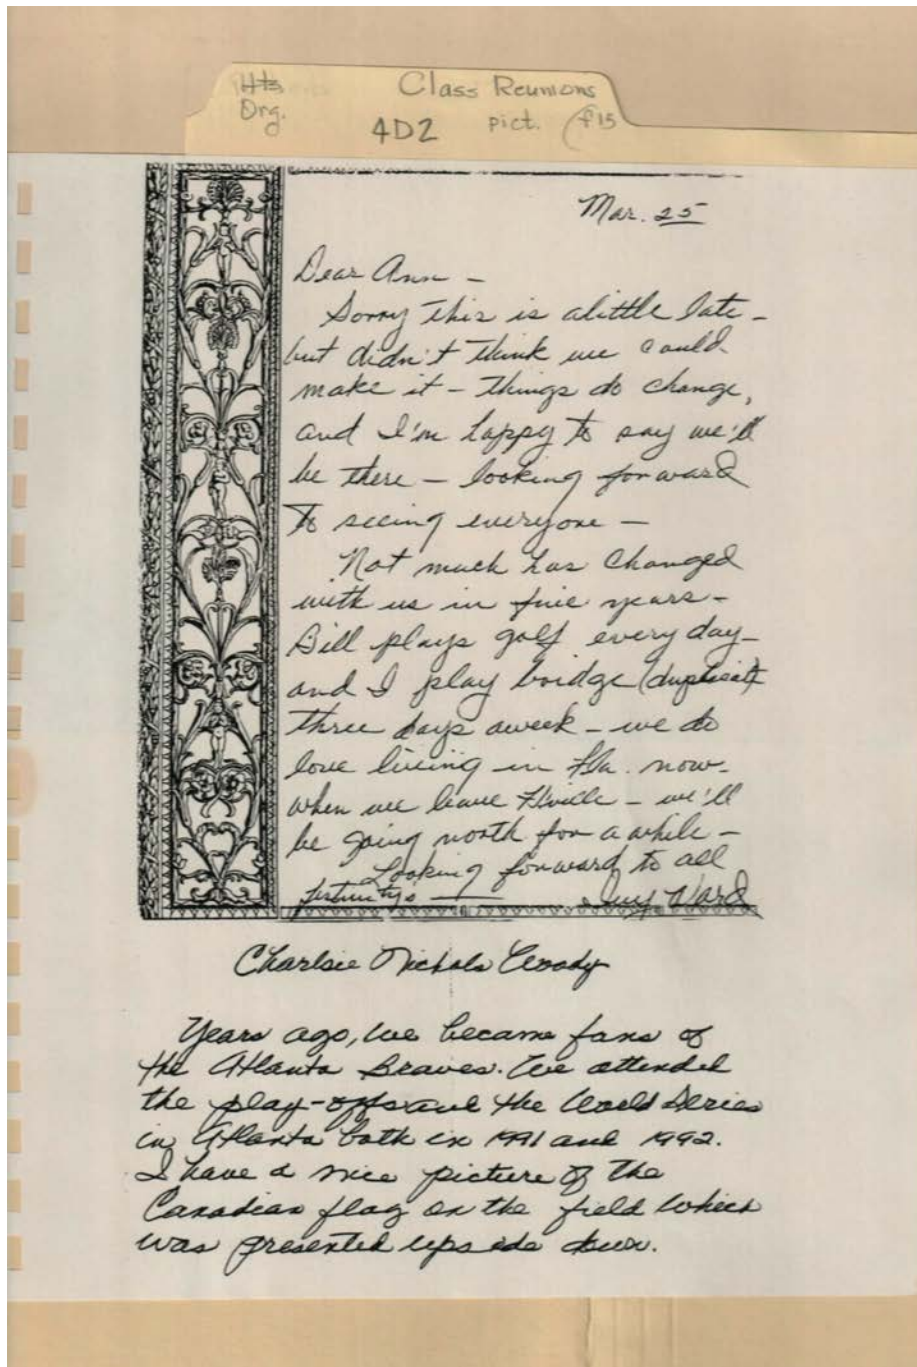 Hts
Org.
Class Reunions
4D2 pict. (f15
Mar. 25
Dear Ann —
Sorry this is alittle late —
but didn't think we could
make it — things do change,
and I'm happy to say we'll
be there — looking forward
to seeing everyone —
Not much has changed
with us in five years —
Bill plays golf every day —
and I play bridge (duplicate)
three days aweek — we do
love living in Fla. now —
when we leave H'ville — we'll
be going north for a while —
Looking forward to all
Ward
Charlsie Nichols Woody
Years ago, we became fans of
the Atlanta Braves. We attended
the play-offs and the World Series
in Atlanta both in 1991 and 1992.
I have a nice picture of the
Canadian flag on the field which
was presented upside down.